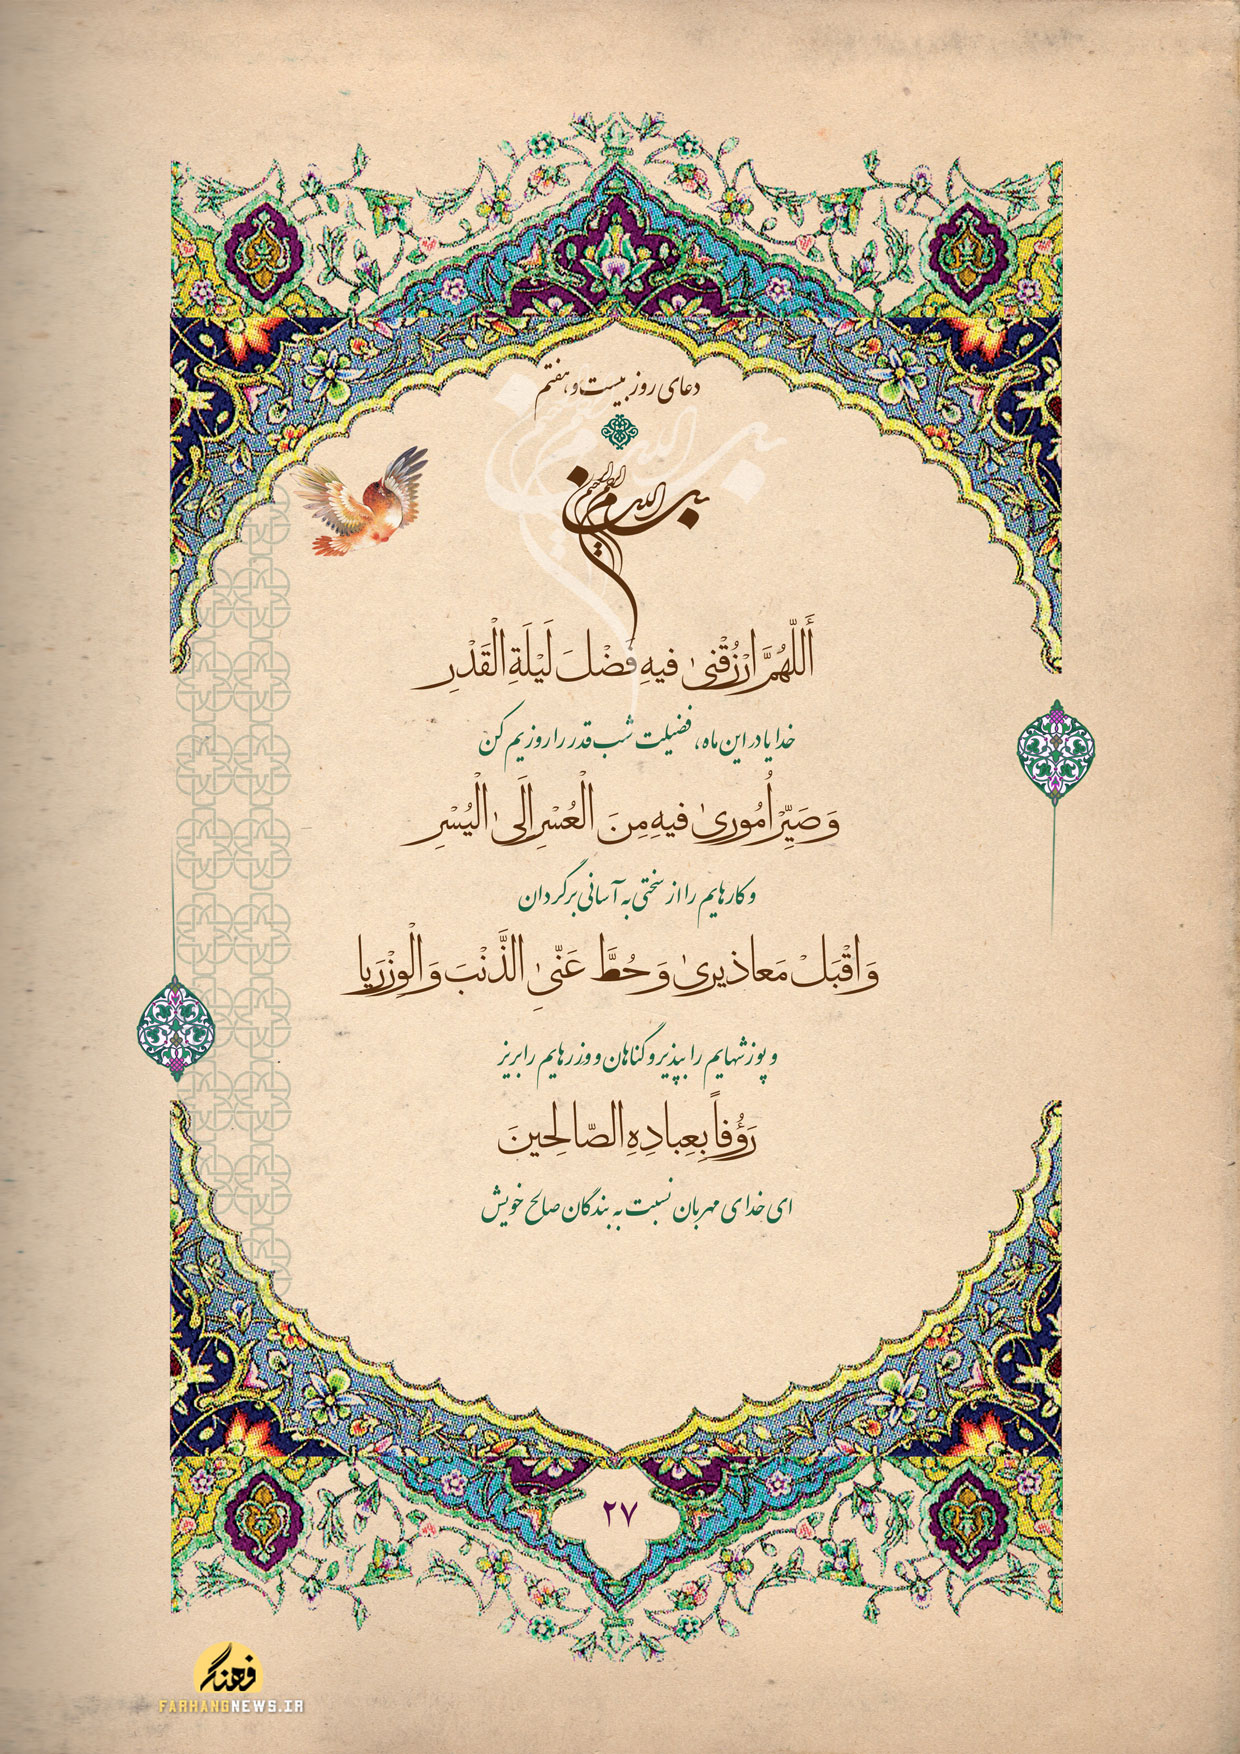 دعای روز بیست و هفتم
بسم الله الرحمن الرحیم
أَللّهُمَّ ارْزُقْنیٰ فیهِ فَضْلَ لَیْلَةِ الْقَدْرِ
خدایا در این ماه، فضیلت شب قدر را روزیم کن
وَ صَیِّرْ اُمُوریٰ فیهِ مِنَ الْعُسْرِ اِلَیٰ الْیُسْرِ
و کارهایم را از سختی به آسانی برگردان
وَ اقْبَلْ مَعاذیریٰ وَ حُطَّ عَنّیِٰ الذَّنْبَ وَ الْوِزْرَ یا
و پوزشهایم را بپذیر و گناهان و وزرهایم را بریز
رَؤُفاً بِعِبادِهِ الصّالِحینَ
ای خدای مهربان نسبت به بندگان صالح خویش
۲۷
فرهنگ
FARHANGNEWS.IR